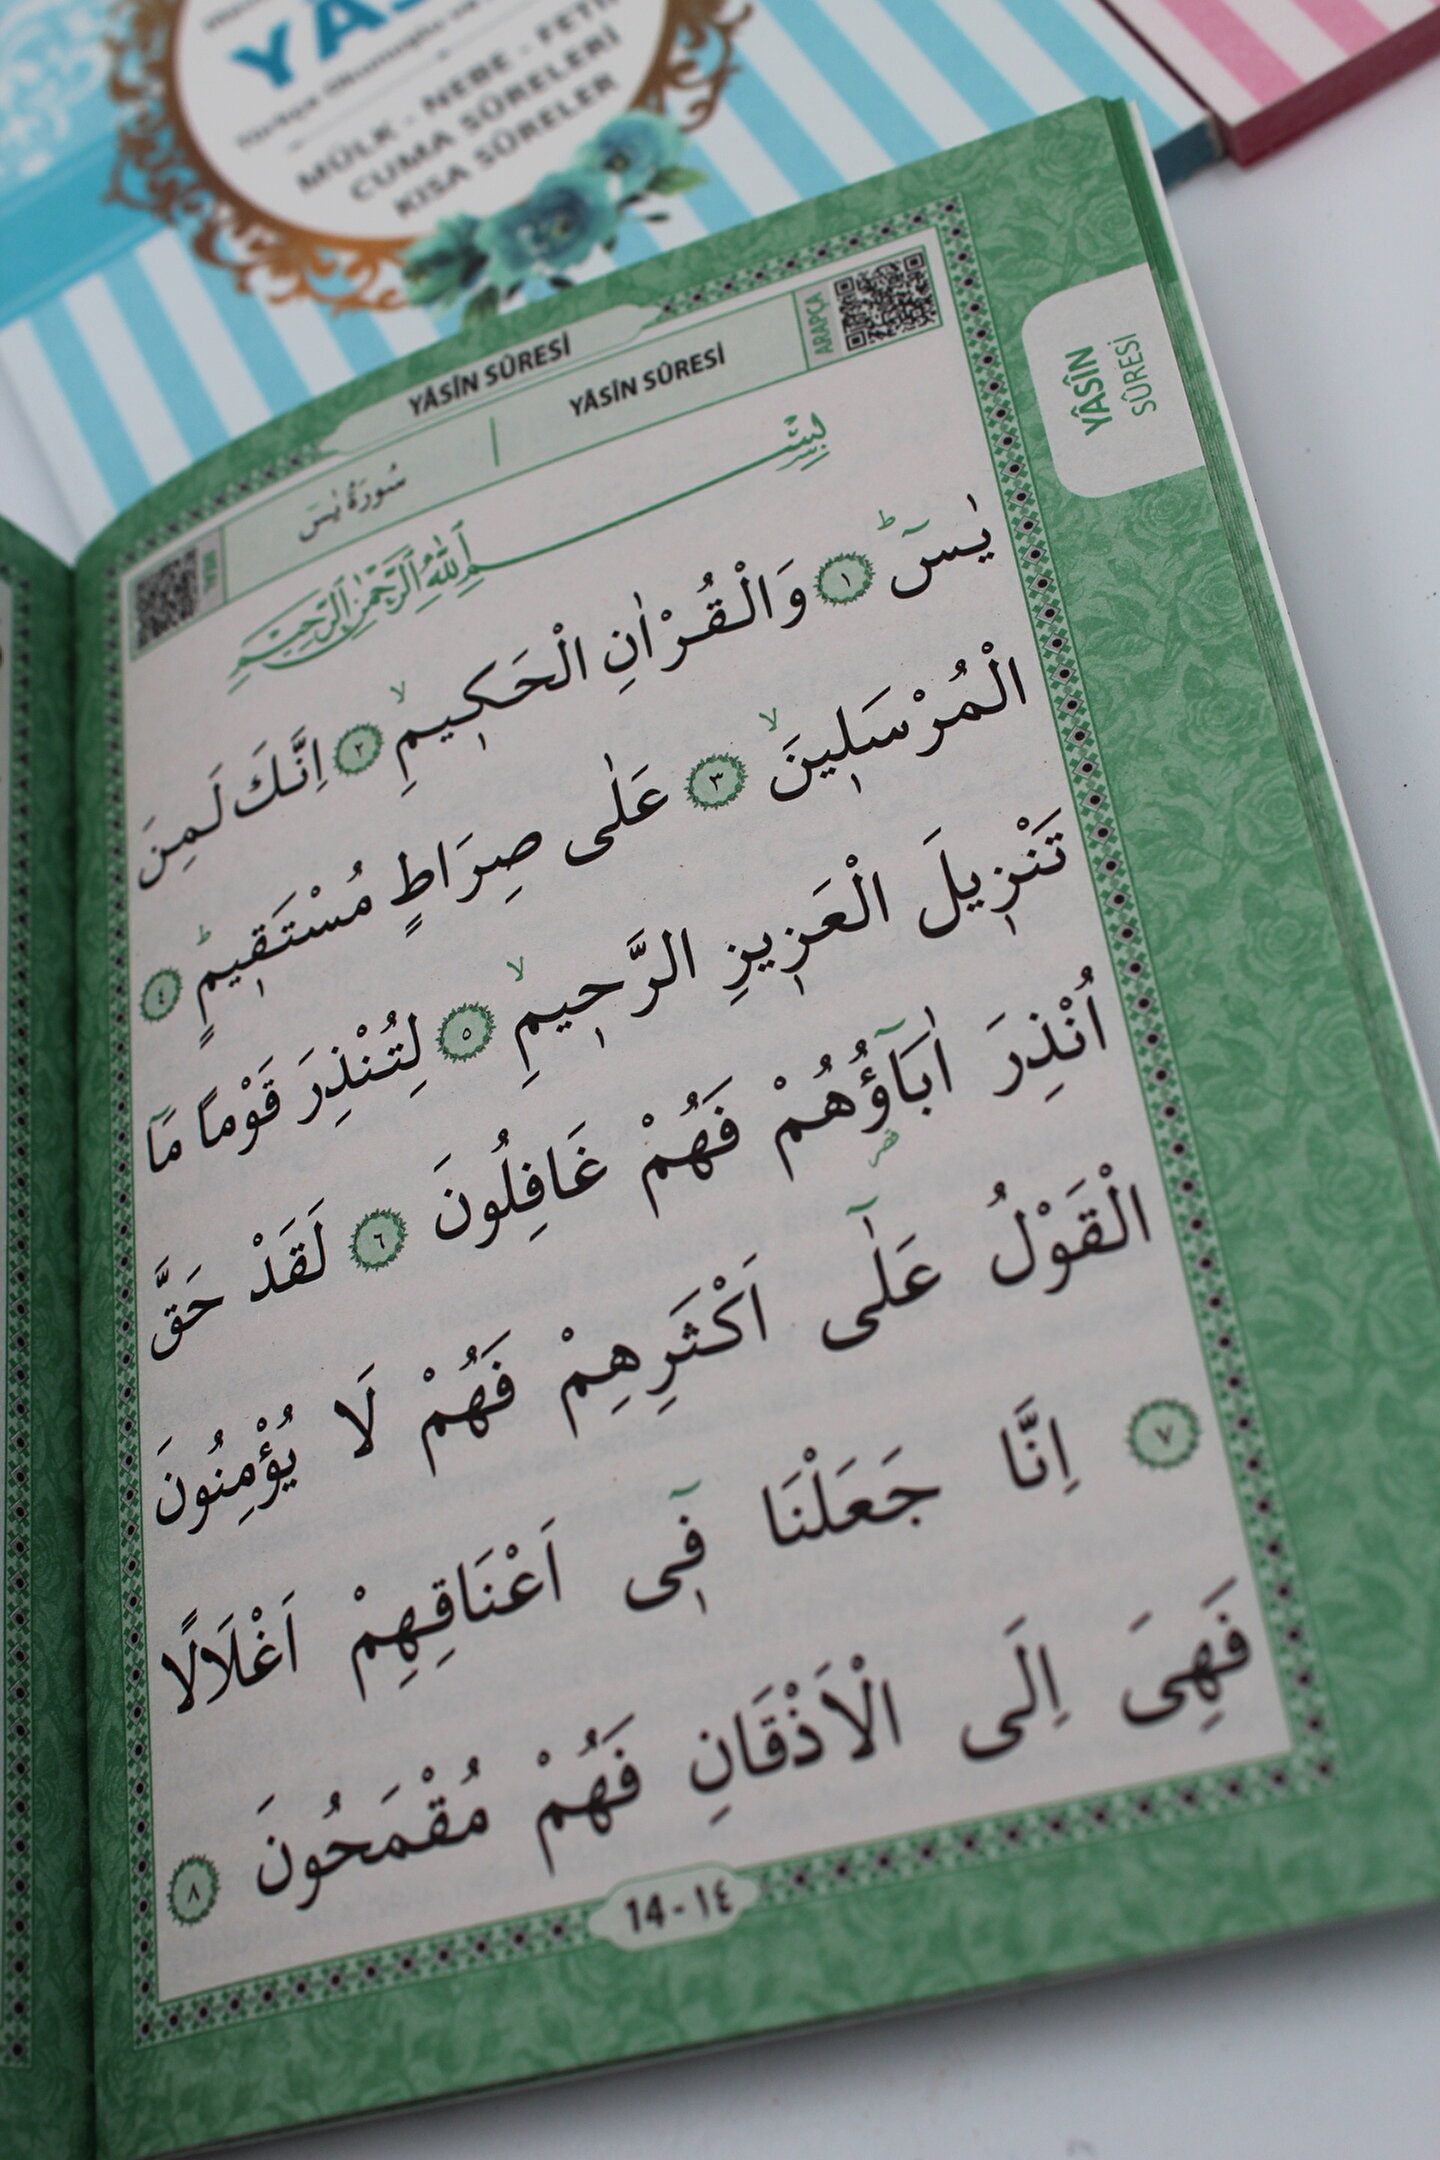 YÂS
Türkçe Okunuşu ve
MÜLK - NEBE - FETİH
CUMA SÛRELERİ
KISA SÛRELER
YÂSÎN SÛRESİ
سُورَةُ يٰسٓ
YÂSÎN SÛRESİ
ARAPÇA
YÂSÎN
SÛRESİ
بِسْمِ اللّٰهِ الرَّحْمٰنِ الرَّحِيمِ
يٰسٓۜ ﴿١﴾ وَالْقُرْاٰنِ الْحَك۪يمِۙ ﴿٢﴾ اِنَّكَ لَمِنَ
الْمُرْسَل۪ينَۙ ﴿٣﴾ عَلٰى صِرَاطٍ مُسْتَق۪يمٍۜ ﴿٤﴾
تَنْز۪يلَ الْعَز۪يزِ الرَّح۪يمِۙ ﴿٥﴾ لِتُنْذِرَ قَوْمًا مَٓا
اُنْذِرَ اٰبَٓاؤُ۬هُمْ فَهُمْ غَافِلُونَ ﴿٦﴾ لَقَدْ حَقَّ
الْقَوْلُ عَلٰٓى اَكْثَرِهِمْ فَهُمْ لَا يُؤْمِنُونَ
﴿٧﴾ اِنَّا جَعَلْنَا ف۪ٓى اَعْنَاقِهِمْ اَغْلَالًا
فَهِىَ اِلَى الْاَذْقَانِ فَهُمْ مُقْمَحُونَ ﴿٨﴾
14 - ١٤